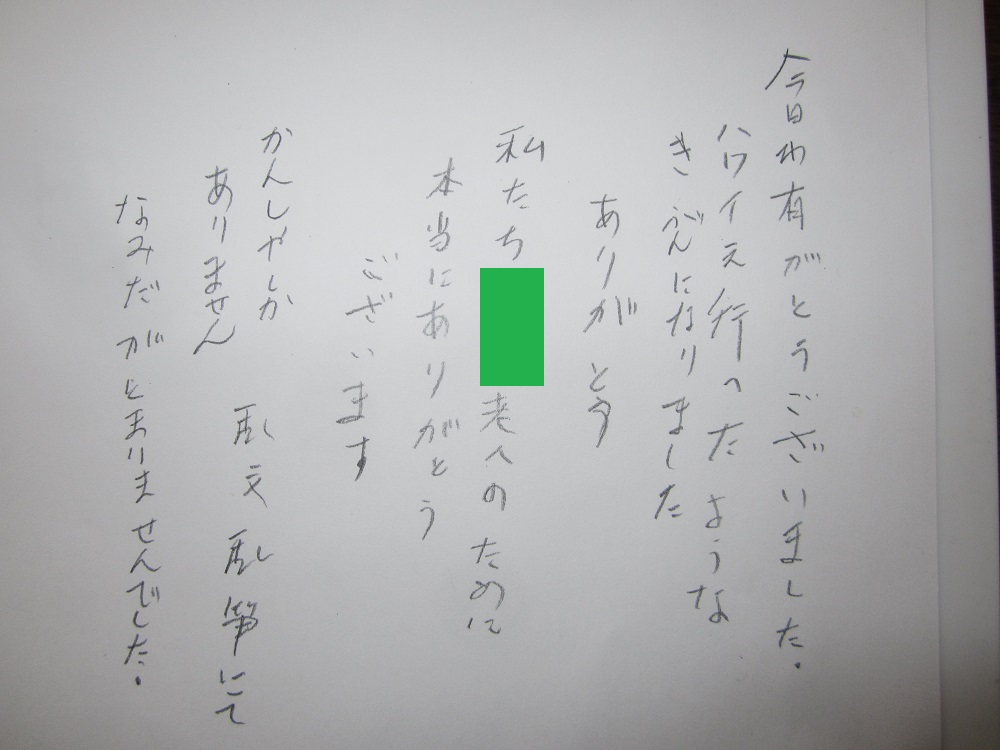 今日わ有がとうございました.
ハワイえ行へたような
きぶんになりました
ありがとう
私たち
老人のために
本当にありがとう
ございます
かんしゃしか
ありません
乱文乱筆にて
なみだがとまりませんでした.